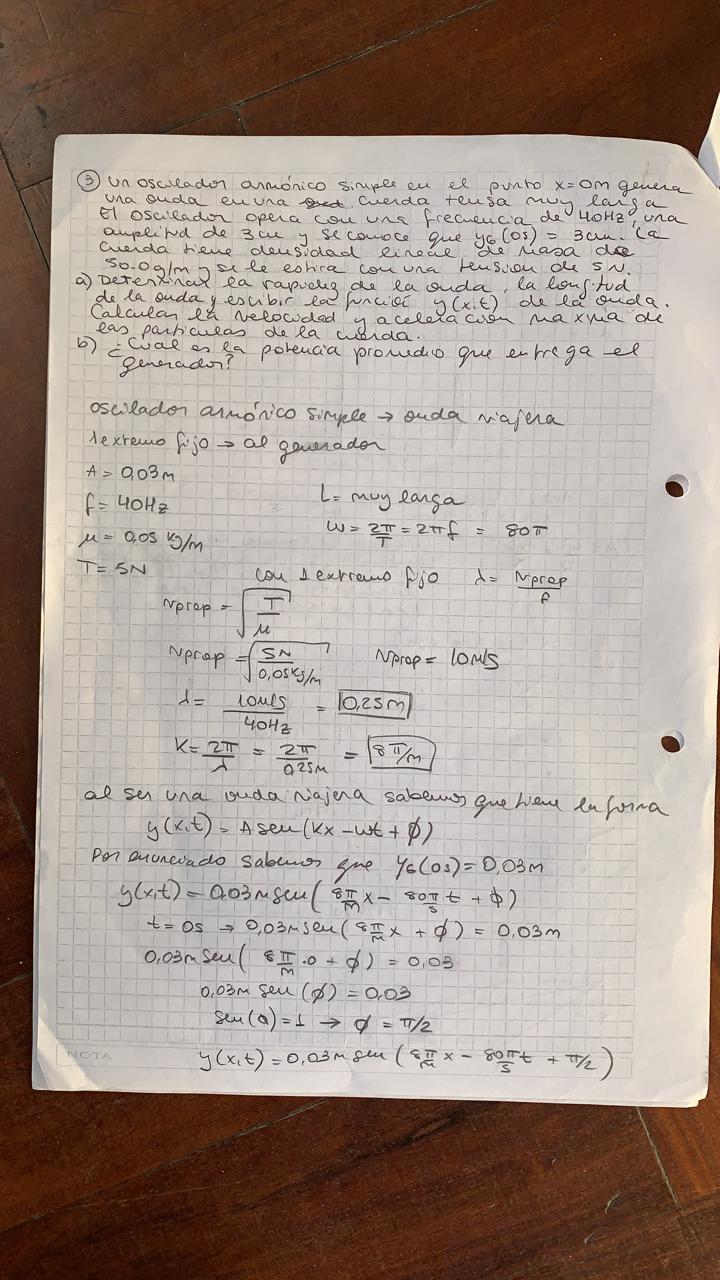 ③ Un oscilador armónico simple en el punto x=0m genera
una onda en una cuerda tensa muy larga
El oscilador opera con una frecuencia de 40Hz, una
amplitud de 3cm y se conoce que y6(0s) = 3cm. La
cuerda tiene densidad lineal de masa de
50.0g/m y se le estira con una tension de 5N.
a) Determinar la rapidez de la onda, la longitud
de la onda y escribir la función y(x,t) de la onda.
Calcular la velocidad y aceleración maxma de
las particulas de la cuerda.
b) ¿Cual es la potencia promedio que entrega el
generador?
oscilador armónico simple → onda viajera
1 extremo fijo → al generador
A = 0,03m
L = muy larga
f = 40Hz
W = 2π/T = 2πf = 80π
μ = 0,05 kg/m
T = 5N
con 1 extremo fijo λ = Vprop/f
Vprop = √(T/μ)
Vprop = √(5N/0,05kg/m) Vprop = 10m/s
λ = 10m/s / 40Hz = 0,25m
K = 2π/λ = 2π/0,25m = 8π/m
al ser una onda viajera sabemos que tiene la forma
y(x,t) = A sen(Kx - wt + φ)
Por enunciado sabemos que y6(0s) = 0,03m
y(x,t) = 0,03m sen(8π/m x - 80π/s t + φ)
t = 0s → 0,03m sen(8π/m x + φ) = 0,03m
0,03m sen(8π/m · 0 + φ) = 0,03
0,03m sen(φ) = 0,03
sen(φ) = 1 → φ = π/2
NOTA
y(x,t) = 0,03m sen(8π/m x - 80π/s t + π/2)